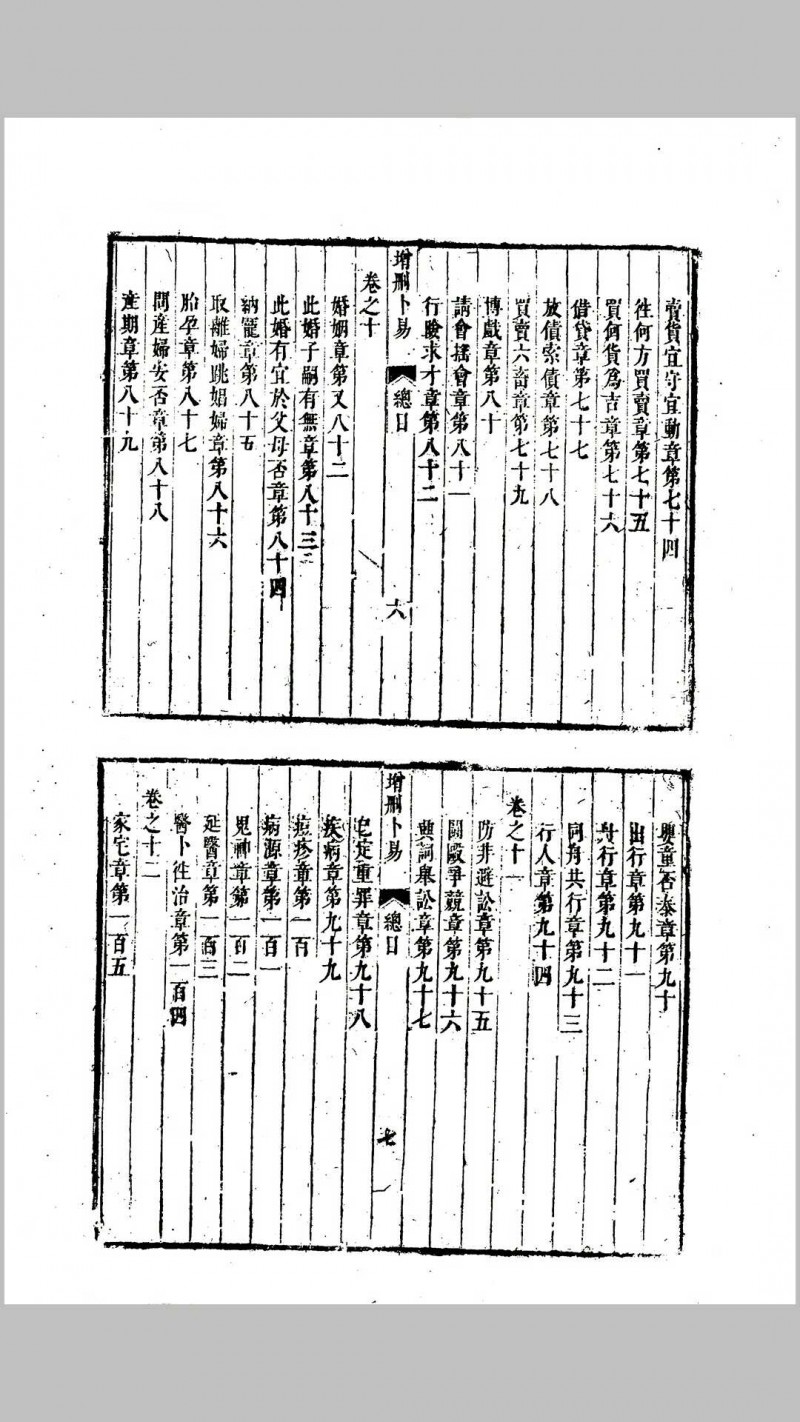 賣貨宜守宜動章第七十四
徃何方買賣章第七十五
買何貨爲吉章第七十六
借貸章第七十七
放債索債章第七十八
買賣六畜章第七十九
博戲章第八十
請會搖會章第八十一
行險求才章第八十二
增刪卜易
總目
六
卷之十
婚姻章第又八十二
此婚子嗣有無章第八十三
此婚有宜於父母否章第八十四
納寵章第八十五
取離婦跳娼婦章第八十六
胎孕章第八十七
問產婦安否章第八十八
產期章第八十九
嬰童否泰章第九十
出行章第九十一
舟行章第九十二
同舟共行章第九十三
行人章第九十四
卷之十一
防非避訟章第九十五
鬬毆爭競章第九十六
興詞舉訟章第九十七
增刪卜易
總目
七
已定重罪章第九十八
疾病章第九十九
痘疹章第一百
病源章第一百一
鬼神章第一百二
延醫章第一百三
醫卜徃治章第一百四
卷之十二
家宅章第一百五